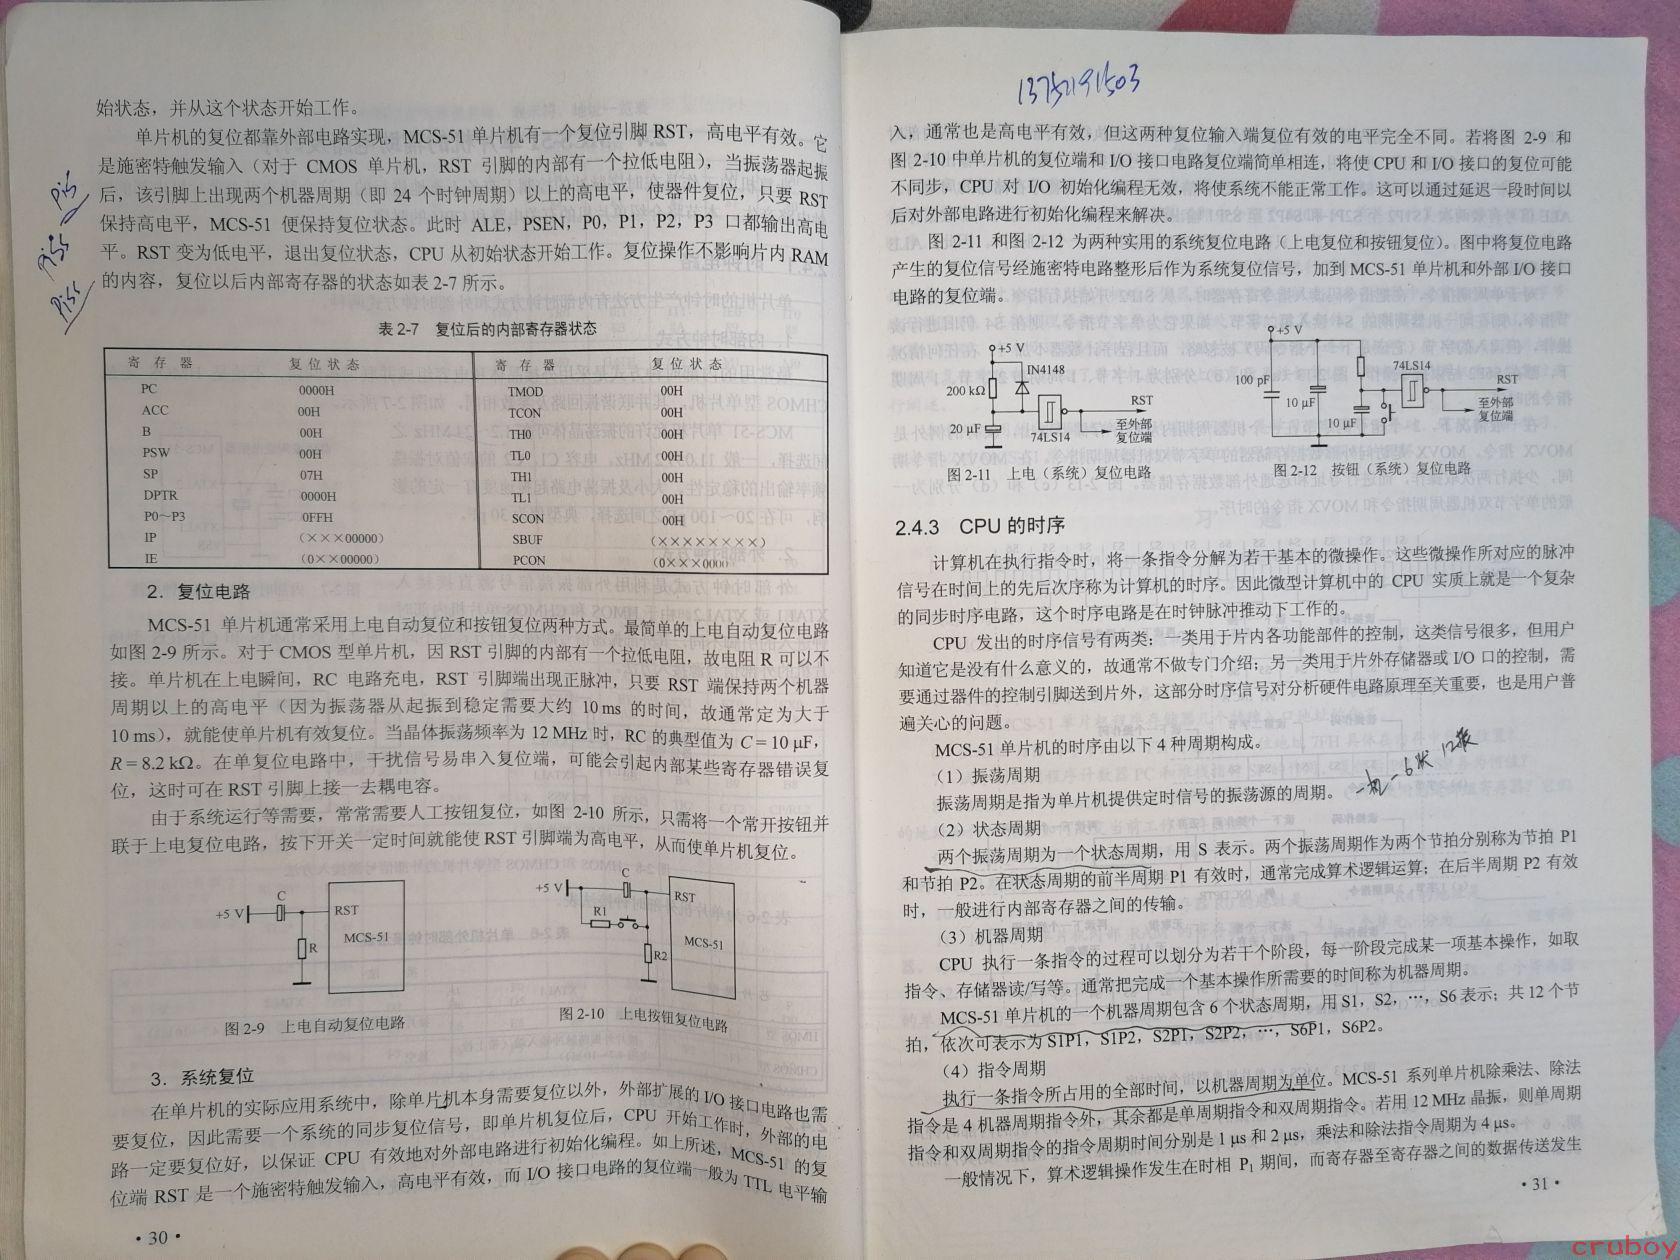 始状态，并从这个状态开始工作。
单片机的复位都靠外部电路实现，MCS-51 单片机有一个复位引脚 RST，高电平有效。它
是施密特触发输入（对于 CMOS 单片机，RST 引脚的内部有一个拉低电阻），当振荡器起振
后，该引脚上出现两个机器周期（即 24 个时钟周期）以上的高电平，使器件复位，只要 RST
保持高电平，MCS-51 便保持复位状态。此时 ALE，PSEN，P0，P1，P2，P3 口都输出高电
平。RST 变为低电平，退出复位状态，CPU 从初始状态开始工作。复位操作不影响片内 RAM
的内容，复位以后内部寄存器的状态如表 2-7 所示。
表 2-7 复位后的内部寄存器状态
寄存器 复位状态 寄存器 复位状态
PC 0000H TMOD 00H
ACC 00H TCON 00H
B 00H TH0 00H
PSW 00H TL0 00H
SP 07H TH1 00H
DPTR 0000H TL1 00H
P0～P3 0FFH SCON 00H
IP （×××00000） SBUF （××××××××）
IE （0××00000） PCON （0×××0000）
2．复位电路
MCS-51 单片机通常采用上电自动复位和按钮复位两种方式。最简单的上电自动复位电路
如图 2-9 所示。对于 CMOS 型单片机，因 RST 引脚的内部有一个拉低电阻，故电阻 R 可以不
接。单片机在上电瞬间，RC 电路充电，RST 引脚端出现正脉冲，只要 RST 端保持两个机器
周期以上的高电平（因为振荡器从起振到稳定需要大约 10 ms 的时间，故通常定为大于
10 ms），就能使单片机有效复位。当晶体振荡频率为 12 MHz 时，RC 的典型值为 C = 10 μF，
R = 8.2 kΩ。在单复位电路中，干扰信号易串入复位端，可能会引起内部某些寄存器错误复
位，这时可在 RST 引脚上接一去耦电容。
由于系统运行等需要，常常需要人工按钮复位，如图 2-10 所示，只需将一个常开按钮并
联于上电复位电路，按下开关一定时间就能使 RST 引脚端为高电平，从而使单片机复位。
+5 V C RST R MCS-51
+5 V C R1 RST R2 MCS-51
图 2-9 上电自动复位电路
图 2-10 上电按钮复位电路
3．系统复位
在单片机的实际应用系统中，除单片机本身需要复位以外，外部扩展的 I/O 接口电路也需
要复位，因此需要一个系统的同步复位信号，即单片机复位后，CPU 开始工作时，外部的电
路一定要复位好，以保证 CPU 有效地对外部电路进行初始化编程。如上所述，MCS-51 的复
位端 RST 是一个施密特触发输入，高电平有效，而 I/O 接口电路的复位端一般为 TTL 电平输
·30·
入，通常也是高电平有效，但这两种复位输入端复位有效的电平完全不同。若将图 2-9 和
图 2-10 中单片机的复位端和 I/O 接口电路复位端简单相连，将使 CPU 和 I/O 接口的复位可能
不同步，CPU 对 I/O 初始化编程无效，将使系统不能正常工作。这可以通过延迟一段时间以
后对外部电路进行初始化编程来解决。
图 2-11 和图 2-12 为两种实用的系统复位电路（上电复位和按钮复位）。图中将复位电路
产生的复位信号经施密特电路整形后作为系统复位信号，加到 MCS-51 单片机和外部 I/O 接口
电路的复位端。
+5 V
200 kΩ
IN4148
20 μF
74LS14
RST
至外部
复位端
+5 V
100 pF
10 μF
10 μF
74LS14
RST
至外部
复位端
图 2-11 上电（系统）复位电路
图 2-12 按钮（系统）复位电路
2.4.3 CPU 的时序
计算机在执行指令时，将一条指令分解为若干基本的微操作。这些微操作所对应的脉冲
信号在时间上的先后次序称为计算机的时序。因此微型计算机中的 CPU 实质上就是一个复杂
的同步时序电路，这个时序电路是在时钟脉冲推动下工作的。
CPU 发出的时序信号有两类：一类用于片内各功能部件的控制，这类信号很多，但用户
知道它是没有什么意义的，故通常不做专门介绍；另一类用于片外存储器或 I/O 口的控制，需
要通过器件的控制引脚送到片外，这部分时序信号对分析硬件电路原理至关重要，也是用户普
遍关心的问题。
MCS-51 单片机的时序由以下 4 种周期构成。
（1）振荡周期
振荡周期是指为单片机提供定时信号的振荡源的周期。
（2）状态周期
两个振荡周期为一个状态周期，用 S 表示。两个振荡周期作为两个节拍分别称为节拍 P1
和节拍 P2。在状态周期的前半周期 P1 有效时，通常完成算术逻辑运算；在后半周期 P2 有效
时，一般进行内部寄存器之间的传输。
（3）机器周期
CPU 执行一条指令的过程可以划分为若干个阶段，每一阶段完成某一项基本操作，如取
指令、存储器读/写等。通常把完成一个基本操作所需要的时间称为机器周期。
MCS-51 单片机的一个机器周期包含 6 个状态周期，用 S1，S2，…，S6 表示；共 12 个节
拍，依次可表示为 S1P1，S1P2，S2P1，S2P2，…，S6P1，S6P2。
（4）指令周期
执行一条指令所占用的全部时间，以机器周期为单位。MCS-51 系列单片机除乘法、除法
指令是 4 机器周期指令外，其余都是单周期指令和双周期指令。若用 12 MHz 晶振，则单周期
指令和双周期指令的指令周期时间分别是 1 μs 和 2 μs，乘法和除法指令周期为 4 μs。
一般情况下，算术逻辑操作发生在时相 P1 期间，而寄存器至寄存器之间的数据传送发生
·31·
cruboy